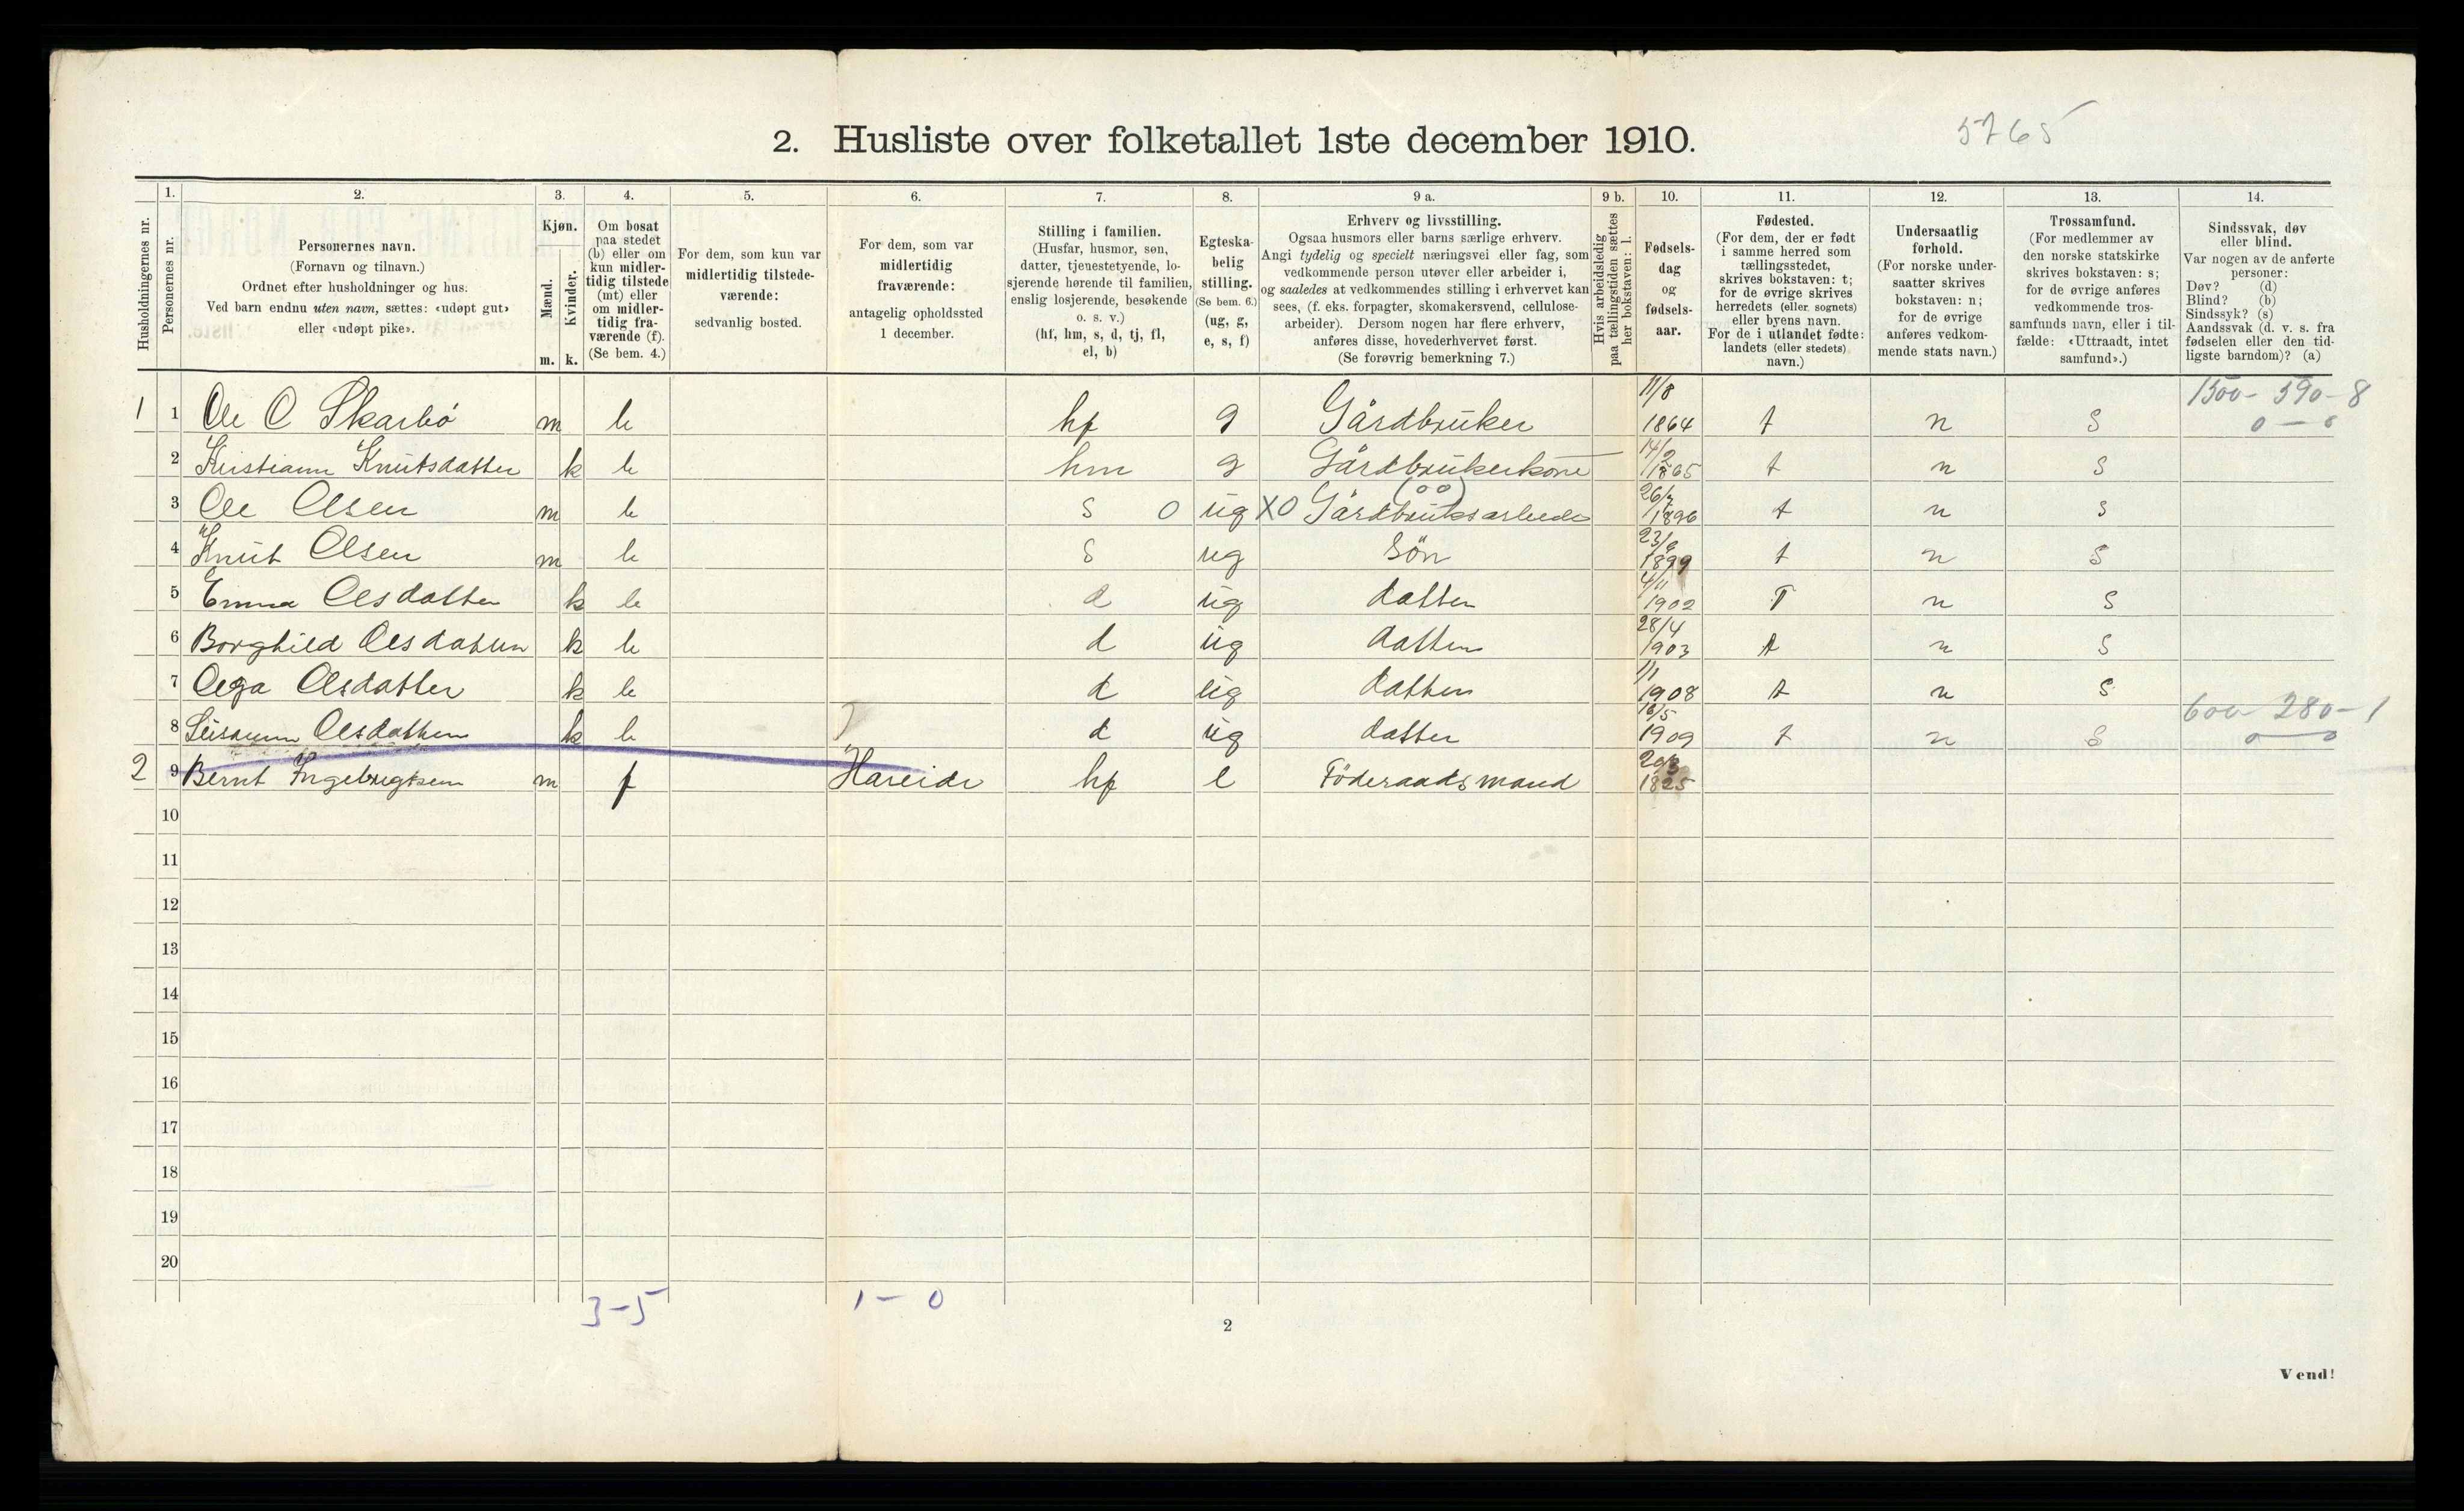 5765
2. Husliste over folketallet 1ste december 1910.
Husholdningernes nr.
1.
Personernes nr.
2.
Personernes navn.
(Fornavn og tilnavn.)
Ordnet efter husholdninger og hus.
Ved barn endnu uten navn, sættes: «udøpt gut»
eller «udøpt pike».
3.
Kjøn.
Mænd.
Kvinder.
m. k.
4.
Om bosat
paa stedet
(b) eller om
kun midler-
tidig tilstede
(mt) eller
om midler-
tidig fra-
værende (f).
(Se bem. 4.)
5.
For dem, som kun var
midlertidig tilstede-
værende:
sedvanlig bosted.
6.
For dem, som var
midlertidig
fraværende:
antagelig opholdssted
1 december.
7.
Stilling i familien.
(Husfar, husmor, søn,
datter, tjenestetyende, lo-
sjerende hørende til familien,
enslig losjerende, besøkende
o. s. v.)
(hf, hm, s, d, tj, fl,
el, b)
8.
Egteska-
belig
stilling.
(Se bem. 6.)
(ug, g,
e, s, f)
9 a.
Erhverv og livsstilling.
Ogsaa husmors eller barns særlige erhverv.
Angi tydelig og specielt næringsvei eller fag, som
vedkommende person utøver eller arbeider i,
og saaledes at vedkommendes stilling i erhvervet kan
sees, (f. eks. forpagter, skomakersvend, cellulose-
arbeider). Dersom nogen har flere erhverv,
anføres disse, hovederhvervet først.
(Se forøvrig bemerkning 7.)
9 b.
Hvis arbeidsledig
paa tællingstiden sættes
her bokstaven: l.
10.
Fødsels-
dag
og
fødsels-
aar.
11.
Fødested.
(For dem, der er født
i samme herred som
tællingsstedet,
skrives bokstaven: t;
for de øvrige skrives
herredets (eller sognets)
eller byens navn.
For de i utlandet fødte:
landets (eller stedets)
navn.)
12.
Undersaatlig
forhold.
(For norske under-
saatter skrives
bokstaven: n;
for de øvrige
anføres vedkom-
mende stats navn.)
13.
Trossamfund.
(For medlemmer av
den norske statskirke
skrives bokstaven: s;
for de øvrige anføres
vedkommende tros-
samfunds navn, eller i til-
fælde: «Uttraadt, intet
samfund».)
14.
Sindssvak, døv
eller blind.
Var nogen av de anførte
personer:
Døv? (d)
Blind? (b)
Sindssyk? (s)
Aandssvak (d. v. s. fra
fødselen eller den tid-
ligste barndom)? (a)
1 1 Ole O Skarbö m b hf g Gårdbruker 11/8 1864 t n s 1500 - 590 - 8
0 — 0
2 Kristianne Knutsdatter k b hm g Gårdbrukerkone 14/2 1865 t n s
3 Ole Olsen m b s 0 ug X0 Gårdbruksarbeide (00) 26/7 1896 t n s
4 Knut Olsen m b s ug Sön 23/9 1899 t n s
5 Emma Olsdatter k b d ug datter 4/11 1902 T n s
6 Borghild Olsdatter k b d ug datter 28/4 1903 t n s
7 Olga Olsdatter k b d ug datter 1/1 1908 t n s
8 Susanne Olsdatter k b d ug datter 16/5 1909 t n s 600 - 280 - 1
0 — 0
2 9 Bernt Ingebrigtsen m f Hareide hf e Föderaadsmand 20/3 1825
10
11
12
13
14
15
16
17
18
19
20
3 - 5
1 - 0
2
Vend!